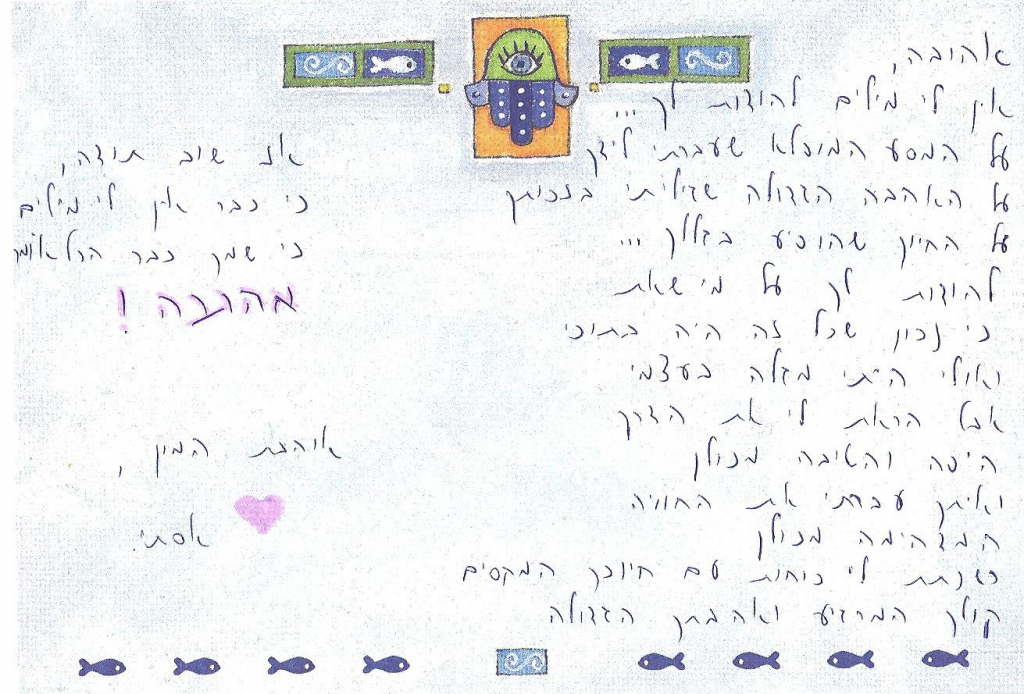 אהובה,
אין לי מילים להודות לך...
על המסע המופלא שעברתי לידך
על האהבה הגדולה שגיליתי בנוכחותך
על החיוך שהופיע בגללך...
להודות לך על מי שאת
כי נכון שכל זה היה בתוכי
ואולי הייתי מגלה בעצמי
אבל הראת לי את הדרך
היפה והטובה מכולן
ואיתך עברתי את החוויה
המדהימה מכולן
כשנתת לי כוחות עם חיוכך המקסים
קולך המרגיע ואהבתך הגדולה
אז שוב תודה,
כי כבר אין לי מילים
כי שמך כבר הכל אומר
אהובה!
אוהבת המון,
אסתי.